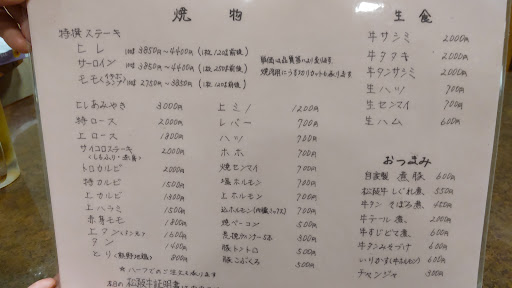 焼物
特撰ステーキ
ヒレ 3850円〜4400円 (1枚120g前後)
サーロイン 3850円〜4400円 (1枚250g前後)
モモ 2750円〜3850円 (1枚120g前後)
ヒレあみやき 3000円
特ロース 2000円
上ロース 1800円
サイコロステーキ 2000円
(しもふり・赤身)
トロカルビ 2000円
特カルビ 1500円
上カルビ 1300円
上ハラミ 1500円
赤身モモ 1300円
上タン 1600円
タン 1400円
とり(熊野地鶏) 800円
※ハーフでのご注文も承ります
本日の松阪牛証明書は
上ミノ 1200円
レバー 700円
ハツ 700円
ホホ 700円
焼センマイ 700円
塩ホルモン 700円
上ホルモン 700円
ホルモン 700円
焼ベーコン 500円
荒挽ウィンナー5本 500円
豚トントロ 500円
豚こぶくろ 500円
生食
牛サシミ 2000円
牛タタキ 2000円
牛タンサシミ 2000円
生ハツ 700円
生センマイ 700円
生ハム 600円
おつまみ
自家製 煮豚 600円
松阪牛 しぐれ煮 550円
牛タン そぼろ煮 450円
牛テール煮 2000円
牛すじどて煮 600円
牛タンみそづけ 600円
いりかす 600円
チャンジャ 500円